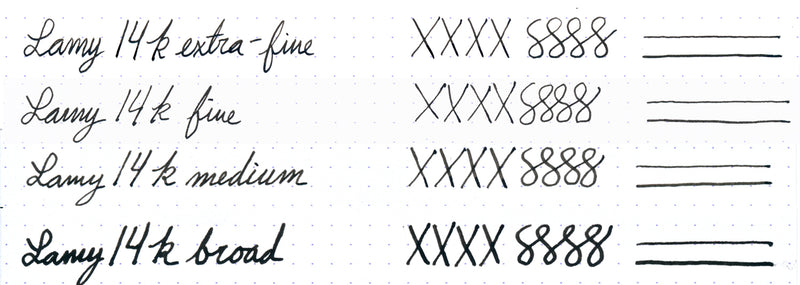 Lamy 14k extra-fine XXXX 8888
Lamy 14k fine XXXX 8888
Lamy 14k medium XXXX 8888
Lamy 14k broad XXXX 8888